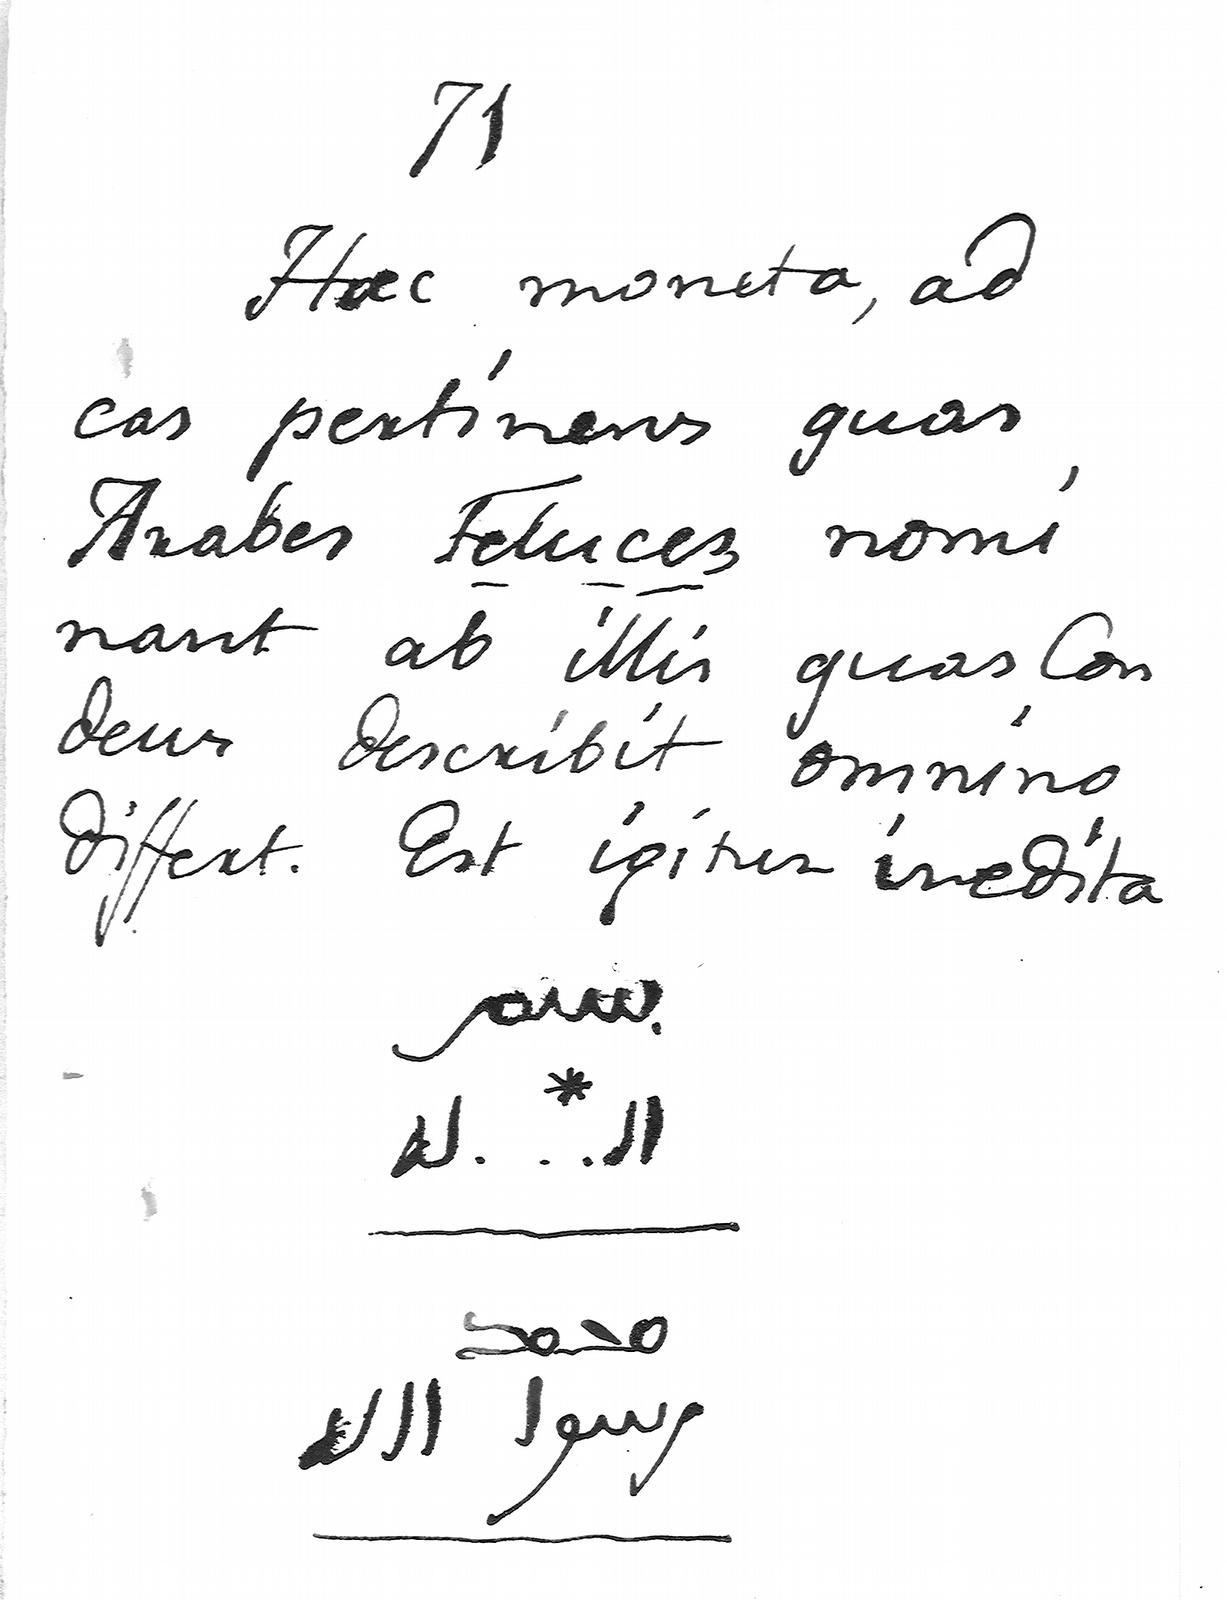 71
Haec moneta, ad
eas pertinens quas
Arabes Feluces nomi
nant ab illis quas Con
deus describit omnino
differt. Est igitur inedita
بسم
*
الـ . . . لله
محمد
رسول الله